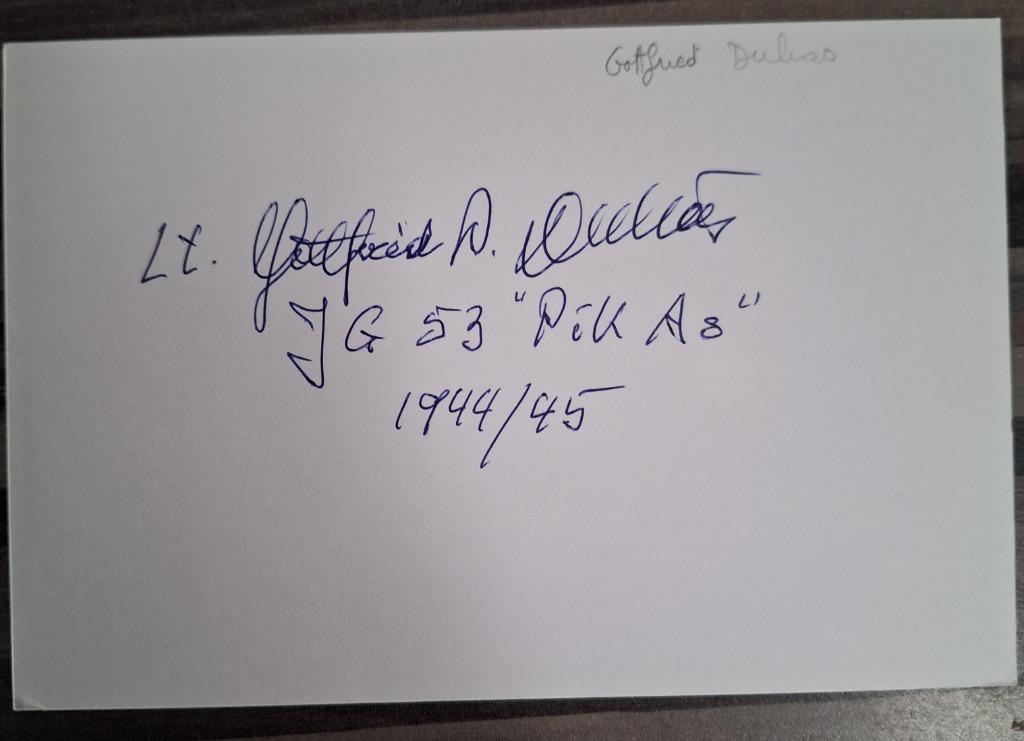 Gottfried Dulias
Lt. Gottfried P. Dulias
JG 53 "Pik As"
1944/45